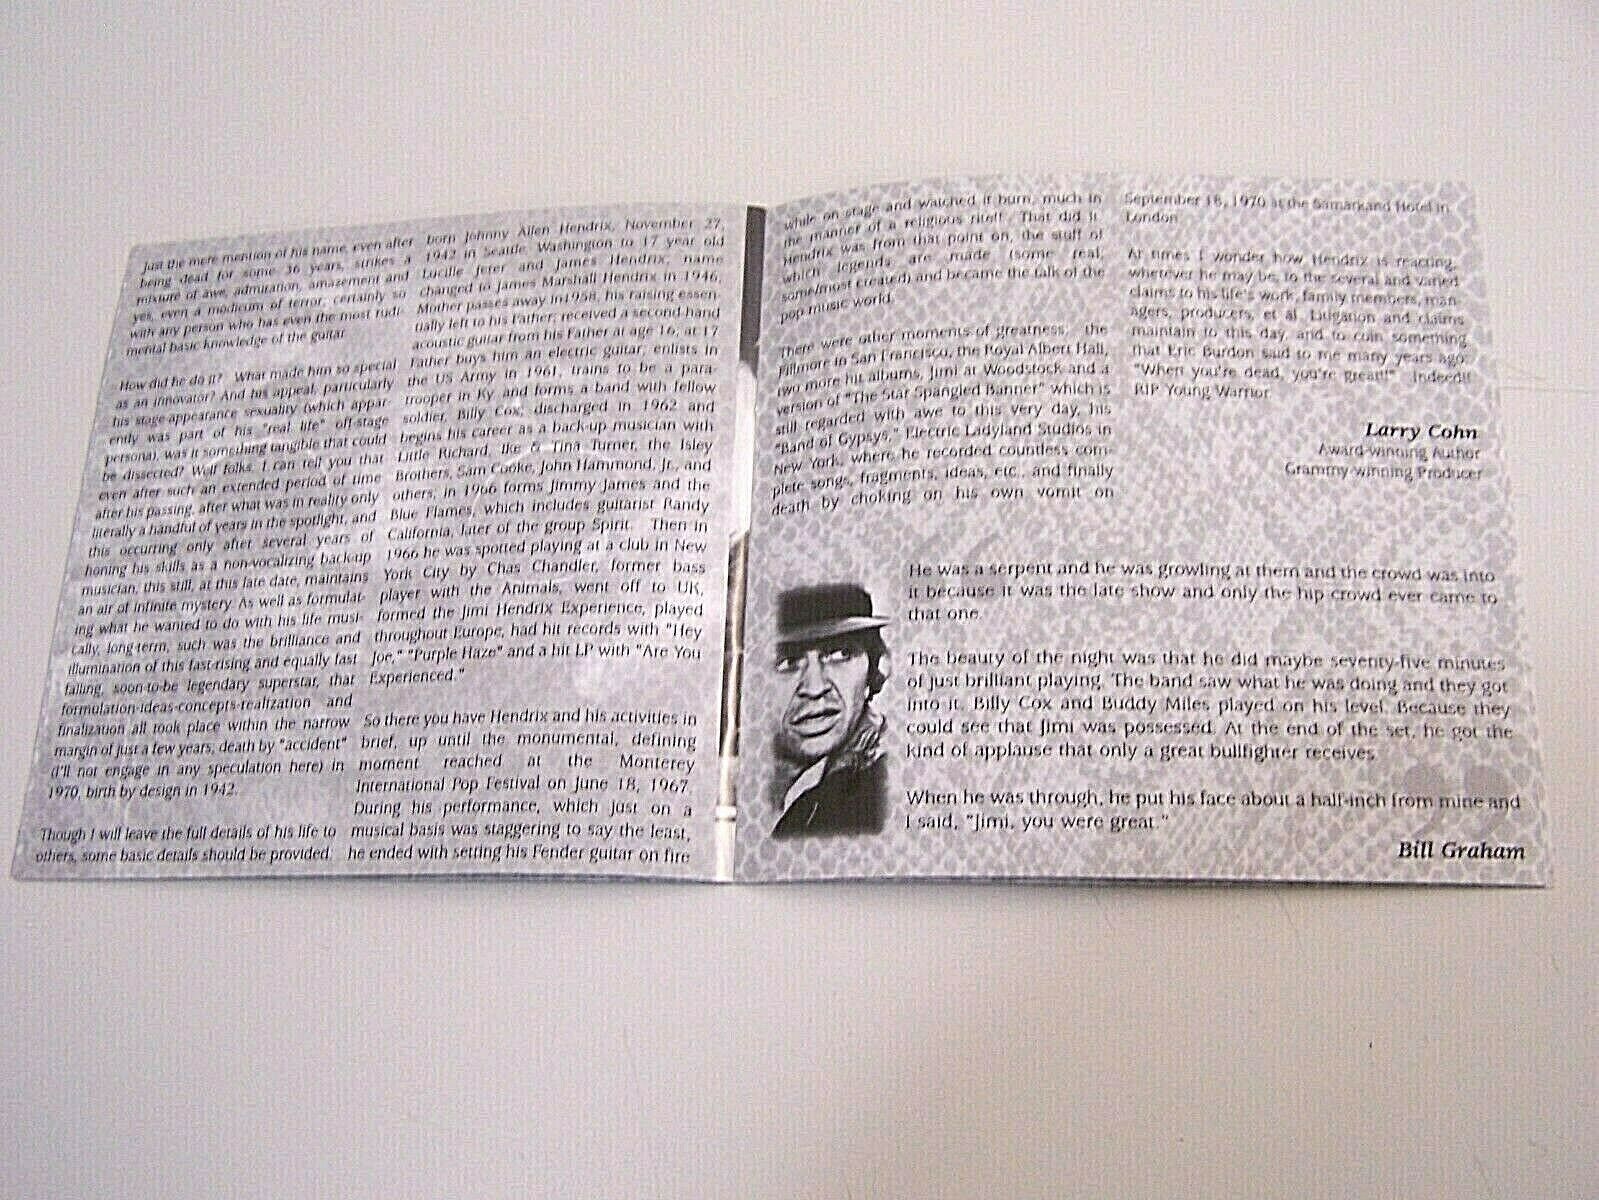 Just the mere mention of his name, even after
being dead for some 36 years, strikes a
mixture of awe, admiration, amazement and
yes, even a modicum of terror; certainly so
with any person who has even the most rudi-
mental basic knowledge of the guitar.
How did he do it? What made him so special
as an innovator? And his appeal, particularly
his stage-appearance sexuality (which appar-
ently was part of his "real life" off-stage
persona), was it something tangible that could
be dissected? Well folks, I can tell you that
even after such an extended period of time
after his passing, after what was in reality only
literally a handful of years in the spotlight, and
this occurring only after several years of
honing his skills as a non-vocalizing back-up
musician, this still, at this late date, maintains
an air of infinite mystery. As well as formulat-
ing what he wanted to do with his life musi-
cally, long-term, such was the brilliance and
illumination of this fast-rising and equally fast
falling, soon-to-be legendary superstar, that
formulation-ideas-concepts-realization and
finalization all took place within the narrow
margin of just a few years, death by "accident"
(I'll not engage in any speculation here) in
1970, birth by design in 1942.
Though I will leave the full details of his life to
others, some basic details should be provided.
born Johnny Allen Hendrix, November 27,
1942 in Seattle, Washington to 17 year old
Lucille Jeter and James Hendrix; name
changed to James Marshall Hendrix in 1946.
Mother passes away in1958, his raising essen-
tially left to his Father; received a second hand
acoustic guitar from his Father at age 16; at 17
Father buys him an electric guitar; enlists in
the US Army in 1961, trains to be a para-
trooper in Ky and forms a band with fellow
soldier, Billy Cox; discharged in 1962 and
begins his career as a back-up musician with
Little Richard, Ike & Tina Turner, the Isley
Brothers, Sam Cooke, John Hammond, Jr., and
others; in 1966 forms Jimmy James and the
Blue Flames, which includes guitarist Randy
California, later of the group Spirit. Then in
1966 he was spotted playing at a club in New
York City by Chas Chandler, former bass
player with the Animals, went off to UK,
formed the Jimi Hendrix Experience, played
throughout Europe, had hit records with "Hey
Joe," "Purple Haze" and a hit LP with "Are You
Experienced."
So there you have Hendrix and his activities in
brief, up until the monumental, defining
moment reached at the Monterey
International Pop Festival on June 18, 1967.
During his performance, which just on a
musical basis was staggering to say the least,
he ended with setting his Fender guitar on fire
while on stage and watched it burn, much in
the manner of a religious rite!! That did it.
Hendrix was from that point on, the stuff of
which legends are made (some real;
some/most created) and became the talk of the
pop music world.
There were other moments of greatness; the
Fillmore in San Francisco, the Royal Albert Hall,
two more hit albums, Jimi at Woodstock and a
version of "The Star Spangled Banner" which is
still regarded with awe to this very day, his
"Band of Gypsys," Electric Ladyland Studios in
New York, where he recorded countless com-
plete songs, fragments, ideas, etc., and finally
death by choking on his own vomit on
September 18, 1970 at the Samarkand Hotel in
London.
At times I wonder how Hendrix is reacting,
wherever he may be, to the several and varied
claims to his life's work, family members, man-
agers, producers, et al. Litigation and claims
maintain to this day, and to coin something
that Eric Burdon said to me many years ago:
"When you're dead, you're great!!" Indeed!!
RIP Young Warrior.
Larry Cohn
Award-winning Author
Grammy-winning Producer
“
He was a serpent and he was growling at them and the crowd was into
it because it was the late show and only the hip crowd ever came to
that one.
The beauty of the night was that he did maybe seventy-five minutes
of just brilliant playing. The band saw what he was doing and they got
into it. Billy Cox and Buddy Miles played on his level. Because they
could see that Jimi was possessed. At the end of the set, he got the
kind of applause that only a great bullfighter receives.
When he was through, he put his face about a half-inch from mine and
I said, "Jimi, you were great."
”
Bill Graham